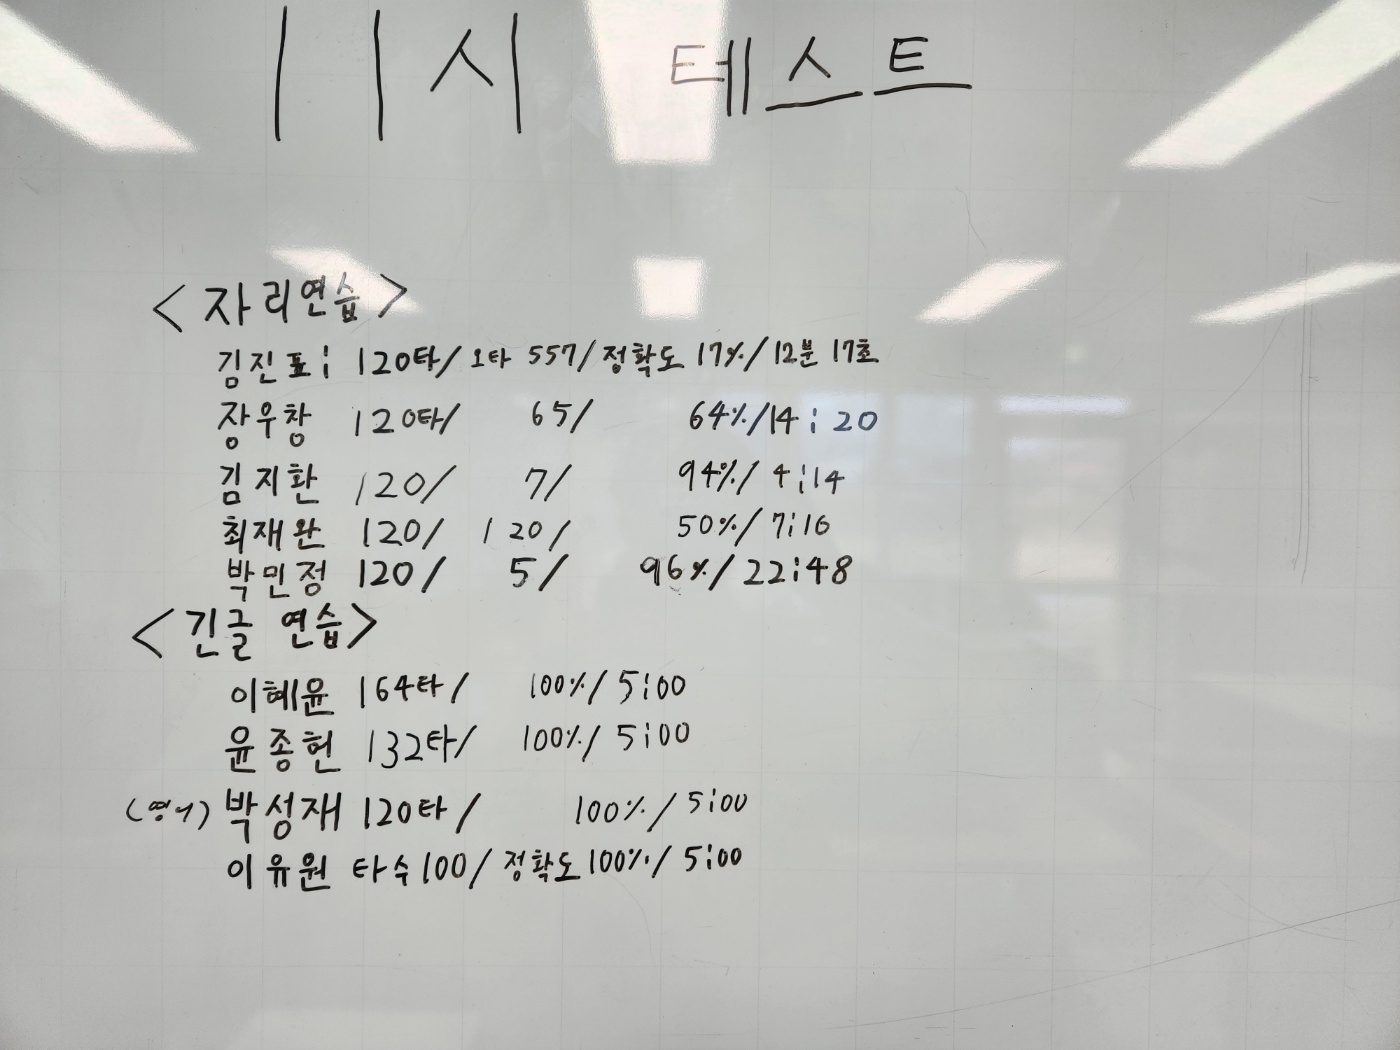 11시 테스트
<자리연습>
김진표: 120타/ 오타 557/ 정확도 17%/ 12분 17초
장우창 120타/ 65/ 64%/14:20
김지환 120/ 7/ 94%/ 4:14
최재완 120/ 120/ 50%/ 7:16
박민정 120/ 5/ 96%/ 22:48
<긴글 연습>
이혜윤 164타/ 100%/ 5:00
윤종헌 132타/ 100%/ 5:00
(영어) 박성재 120타/ 100%/ 5:00
이유원 타수 100/ 정확도 100%/ 5:00